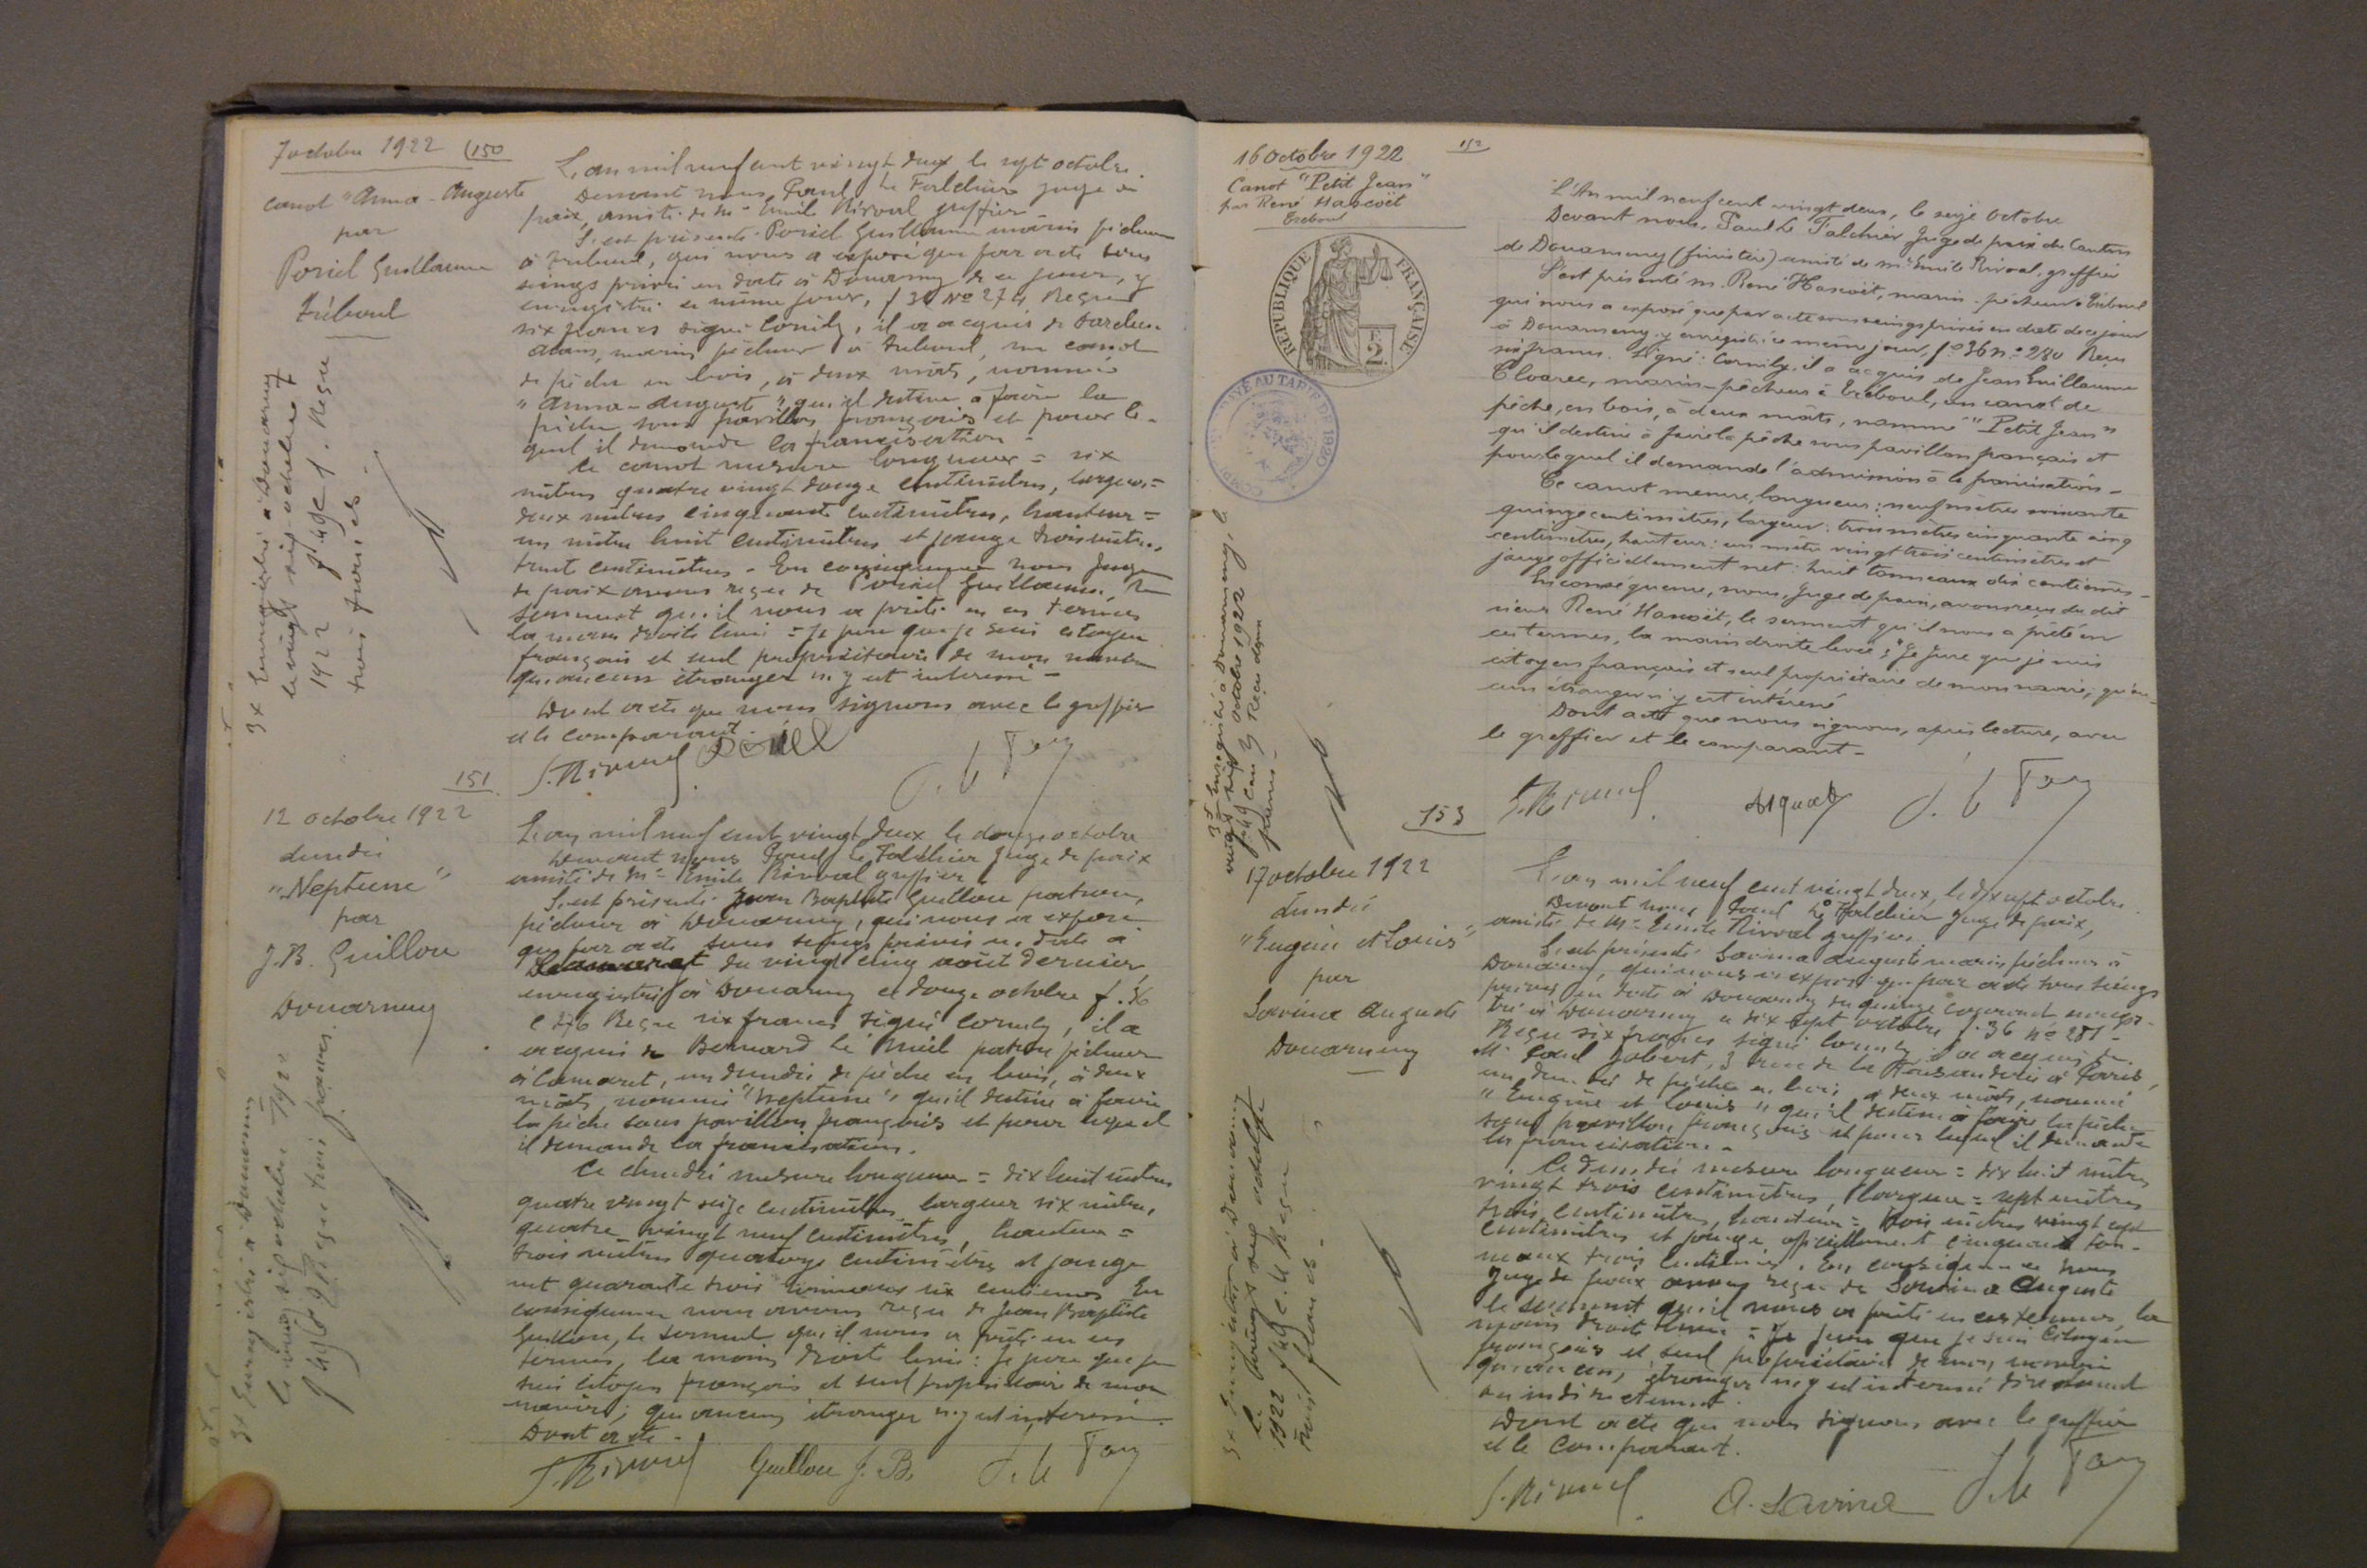 7 octobre 1922 (150
canot "Anna-Auguste
par
Poriel Guillaume
Tréboul
3f Enregistré à Douarnenez
le vingt six octobre
1922 f° 49 c 1. Reçu
trois francs
L'an mil neuf cent vingt deux le sept octobre.
Devant nous, Paul Le Falchier juge de
paix, assisté de Me Emile Rivoal greffier
S'est présenté Poriel Guillaume marin pêcheur
à Tréboul, qui nous a exposé que par acte sous
seings privés en date à Douarnenez de ce jour, y
enregistré le même jour, f 36 No 274 Reçu
six francs signé Cornily, il a acquis de
marin pêcheur à Tréboul, un canot
de pêche en bois, à deux mâts, nommé
"Anna-Auguste" qu'il destine à faire la
pêche sous pavillon français et pour le-
quel il demande la francisation -
Ce canot mesure longueur = six
mètres quatre vingt douze centimètres, largeur =
deux mètres cinquante centimètres, hauteur =
un mètre huit centimètres et jauge trois
trente centièmes - En conséquence nous Juge
de paix avons reçu de Poriel Guillaume, le
serment qu'il nous a prêté en ces termes
la main droite levée = Je jure que je suis citoyen
français et seul propriétaire de mon navire
qu'aucun étranger n'y est intéressé -
Dont acte que nous signons avec le greffier
et le comparant.
E. Rivoal Poriel P. Le Fal
151
12 octobre 1922
dundée
"Neptune"
par
J.B. Guillou
Douarnenez
3f Enregistré à Douarnenez
le vingt six octobre 1922
f° 49 Reçu trois francs
L'an mil neuf cent vingt deux le douze octobre
Devant nous Paul Le Falchier Juge de paix
assisté de Me Emile Rivoal greffier
S'est présenté Jean Baptiste Guillou patron,
pêcheur à Douarnenez, qui nous a exposé
que par acte sous seings privés en date à
Camaret du vingt cinq août dernier
enregistré à Douarnenez le douze octobre f. 36
c 276 Reçu six francs signé Cornily, il a
acquis de Bernard Le patron pêcheur
à Camaret, un dundée de pêche en bois, à deux
mâts, nommé "Neptune" qu'il destine à faire
la pêche sous pavillon français et pour lequel
il demande la francisation.
Ce dundée mesure longueur = dix huit mètres
quatre vingt seize centimètres largeur six mètres
quatre vingt neuf centimètres, hauteur =
trois mètres quatorze centimètres et jauge
net quarante trois tonneaux six centièmes En
conséquence nous avons reçu de Jean Baptiste
Guillou, le serment qu'il nous a prêté en ces
termes, la main droite levée : Je jure que je
suis citoyen français et seul propriétaire de mon
navire; qu'aucun étranger n'y est intéressé.
Dont acte -
E. Rivoal Guillou J. B. P. Le Fal
16 Octobre 1922 152
Canot "Petit Jean"
par René Hascoët
Tréboul
RÉPUBLIQUE FRANÇAISE
2
PAYÉ AU TARIF DE 1920
3f Enregistré à Douarnenez, le
vingt six octobre 1922
f° 49 Case 3 Reçu trois
francs -
L'An mil neuf cent vingt deux, le seize Octobre
Devant nous, Paul Le Falchier Juge de paix du Canton
de Douarnenez (finistère) assisté de Me Emile Rivoal, greffier
S'est présenté M. René Hascoët, marin-pêcheur à Tréboul
qui nous a exposé que par acte sous seings privés en date de ce jour
à Douarnenez y enregistré ce même jour, f° 36 n° 280 Reçu
six francs. Signé : Cornily, il a acquis de Jean Guillaume
Cloarec, marin-pêcheur à Tréboul, un canot de
pêche, en bois, à deux mâts, nommé "Petit Jean"
qu'il destine à faire la pêche sous pavillon français et
pour lequel il demande l'admission à la francisation -
Ce canot mesure, longueur : neuf mètres soixante
quinze centimètres, largeur : trois mètres cinquante cinq
centimètres, hauteur : un mètre vingt trois centimètres et
jauge officiellement net : huit tonneaux dix centièmes -
En conséquence, nous, Juge de paix, avons reçu du dit
sieur René Hascoët, le serment qu'il nous a prêté en
ces termes, la main droite levée : "Je Jure que je suis
citoyen français et seul propriétaire de mon navire, qu'au-
cun étranger n'y est intéressé
Dont acte que nous signons, après lecture, avec
le greffier et le comparant -
E. Rivoal P. Le Fal
153
17 octobre 1922
dundée
"Eugénie et Louis"
par
Savina Auguste
Douarnenez
3f Enregistré à Douarnenez
le vingt six octobre
1922 f 49 c. 4 Reçu
trois francs -
L'an mil neuf cent vingt deux, le dix sept octobre
Devant nous Paul Le Falchier Juge de paix,
assisté de Me Emile Rivoal greffier
S'est présenté Savina Auguste marin pêcheur à
Douarnenez, qui nous a exposé que par acte sous seings
privés en date à Douarnenez du quinze courant enregis-
tré à Douarnenez le dix sept octobre f. 36 no 281 -
Reçu six francs signé Cornily il a acquis de
M. Paul Jobert, 3 rue de la Faisanderie à Paris,
un dundée de pêche en bois, à deux mâts, nommé
"Eugénie et Louis" qu'il destine à faire la pêche
sous pavillon français et pour lequel il demande
la francisation -
Ce dundée mesure longueur = dix huit mètres
vingt trois centimètres, largeur = sept mètres
trois centimètres, hauteur = trois mètres vingt sept
centimètres et jauge officiellement cinquante ton-
neaux trois centièmes. En conséquence nous
Juge de paix avons reçu de Savina Auguste
le serment qu'il nous a prêté en ces termes, la
main droite levée = Je jure que je suis Citoyen
français et seul propriétaire de mon navire
qu'aucun étranger n'y est intéressé directement
ou indirectement.
Dont acte que nous signons avec le greffier
et le comparant.
E. Rivoal A. Savina P. Le Fal